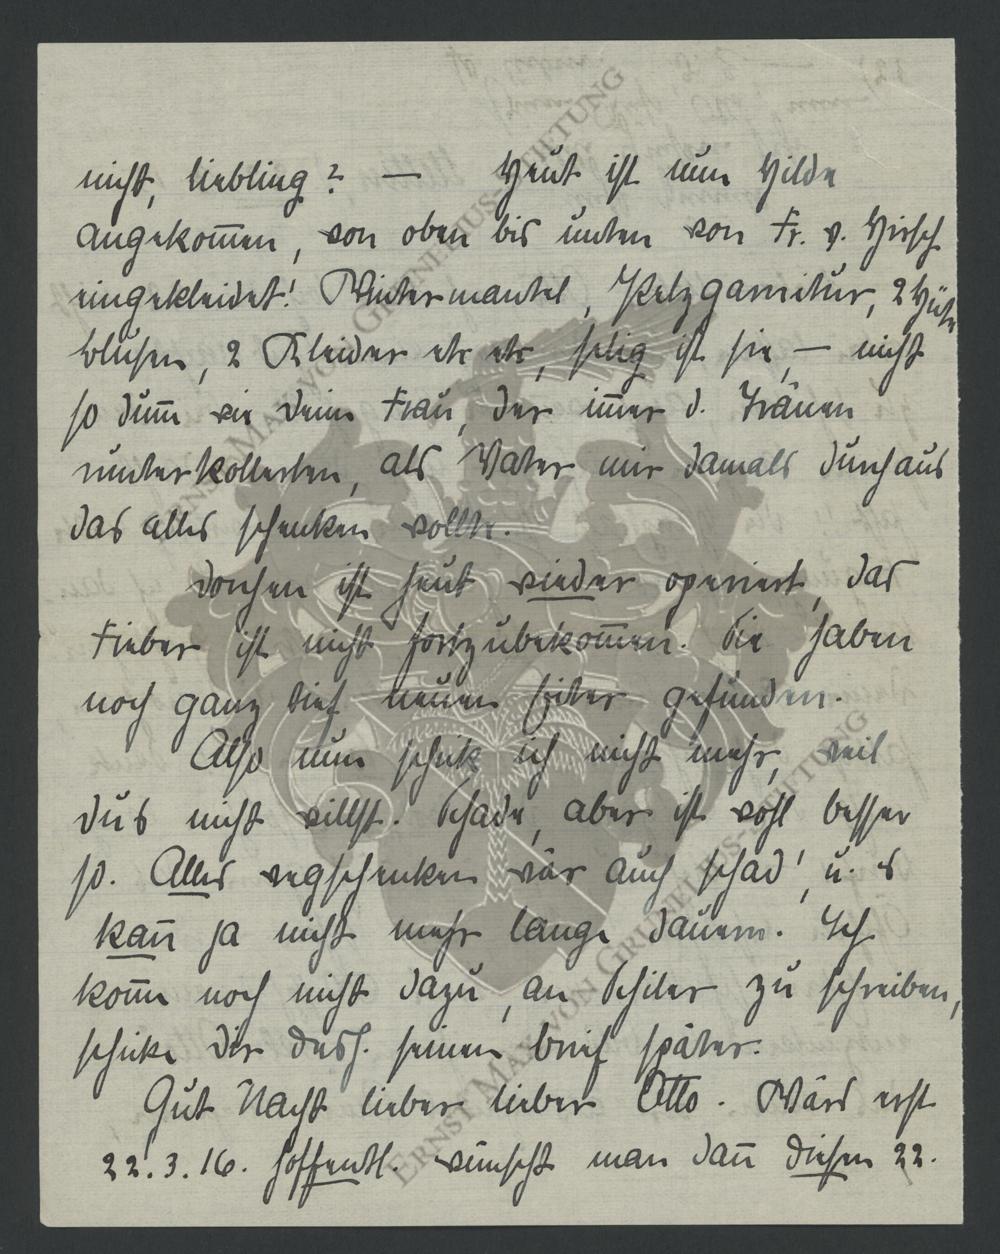 nicht, Liebling? — Heut ist nun Hilde
angekom̄en, von oben bis unten von Fr. v. Hirsch
eingekleidet! Wintermantel, Pelzgarnitur, 2 Hüte
blusen, 2 Kleider etc etc, selig ist sie, — nicht
so dum̄ wie deine Frau, der im̄er d. Tränen
runterkollerten, als Vater mir damals durchaus
das alles schenken wollte.
Dorchen ist heut wieder operiert, das
Fieber ist nicht fortzubekom̄en. Sie haben
noch ganz tief neuen Eiter gefunden.
Also nun schick ich nicht mehr, weil
dus nicht willst. Schade, aber ist wohl besser
so. Alles wegschenken wär auch schad', u. es
kan̄ ja nicht mehr lange dauern. Ich
kom̄e noch nicht dazu, an Schiler zu schreiben,
schicke dir desh. seinen brief später.
Gut Nacht lieber lieber Otto. Wärs erst
22.3.16. hoffentl. wünscht man dan̄ diesen 22.
ERNST MAX VON GRUNELIUS-STIFTUNG
ERNST MAX VON GRUNELIUS-STIFTUNG